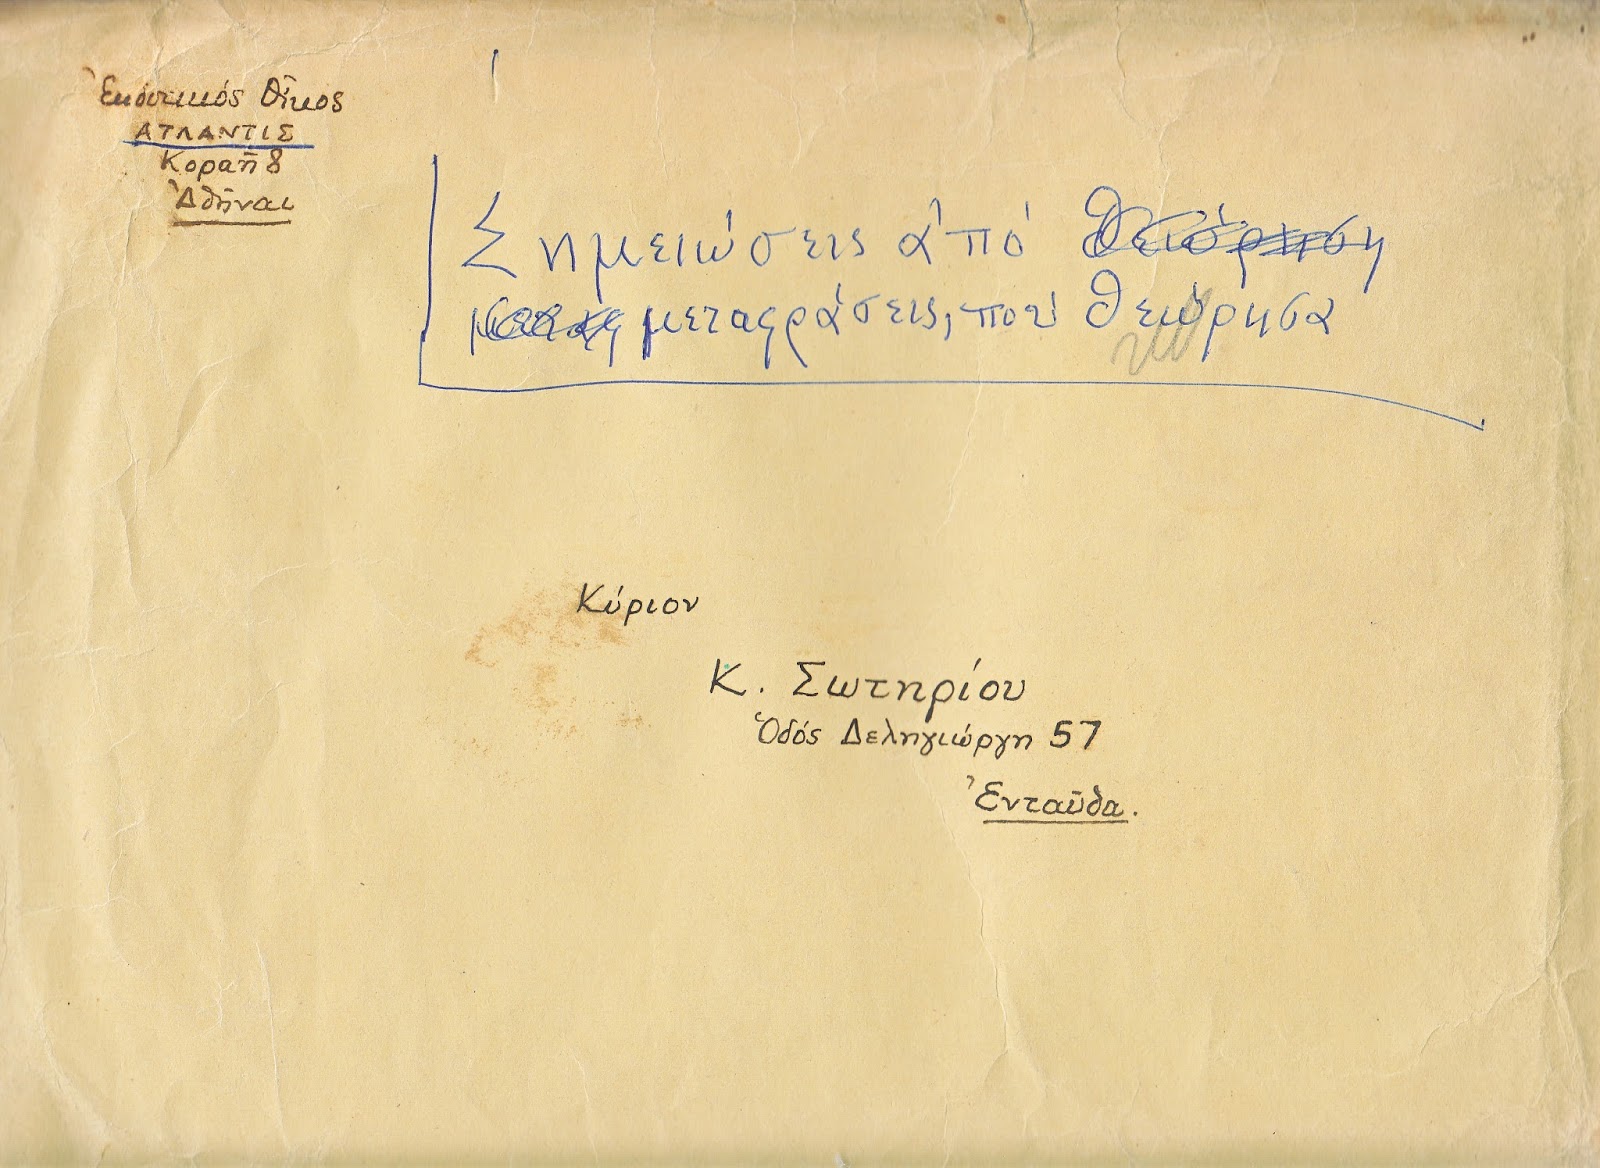 Ἐκδοτικός Οἶκος
ΑΤΛΑΝΤΙΣ
Κοραῆ 8
Ἀθῆναι
Σημειώσεις ἀπό θεώρηση
μεταφράσεις, πού θεώρησα
Κύριον
Κ. Σωτηρίου
Ὁδός Δεληγιώργη 57
Ἐνταῦθα.